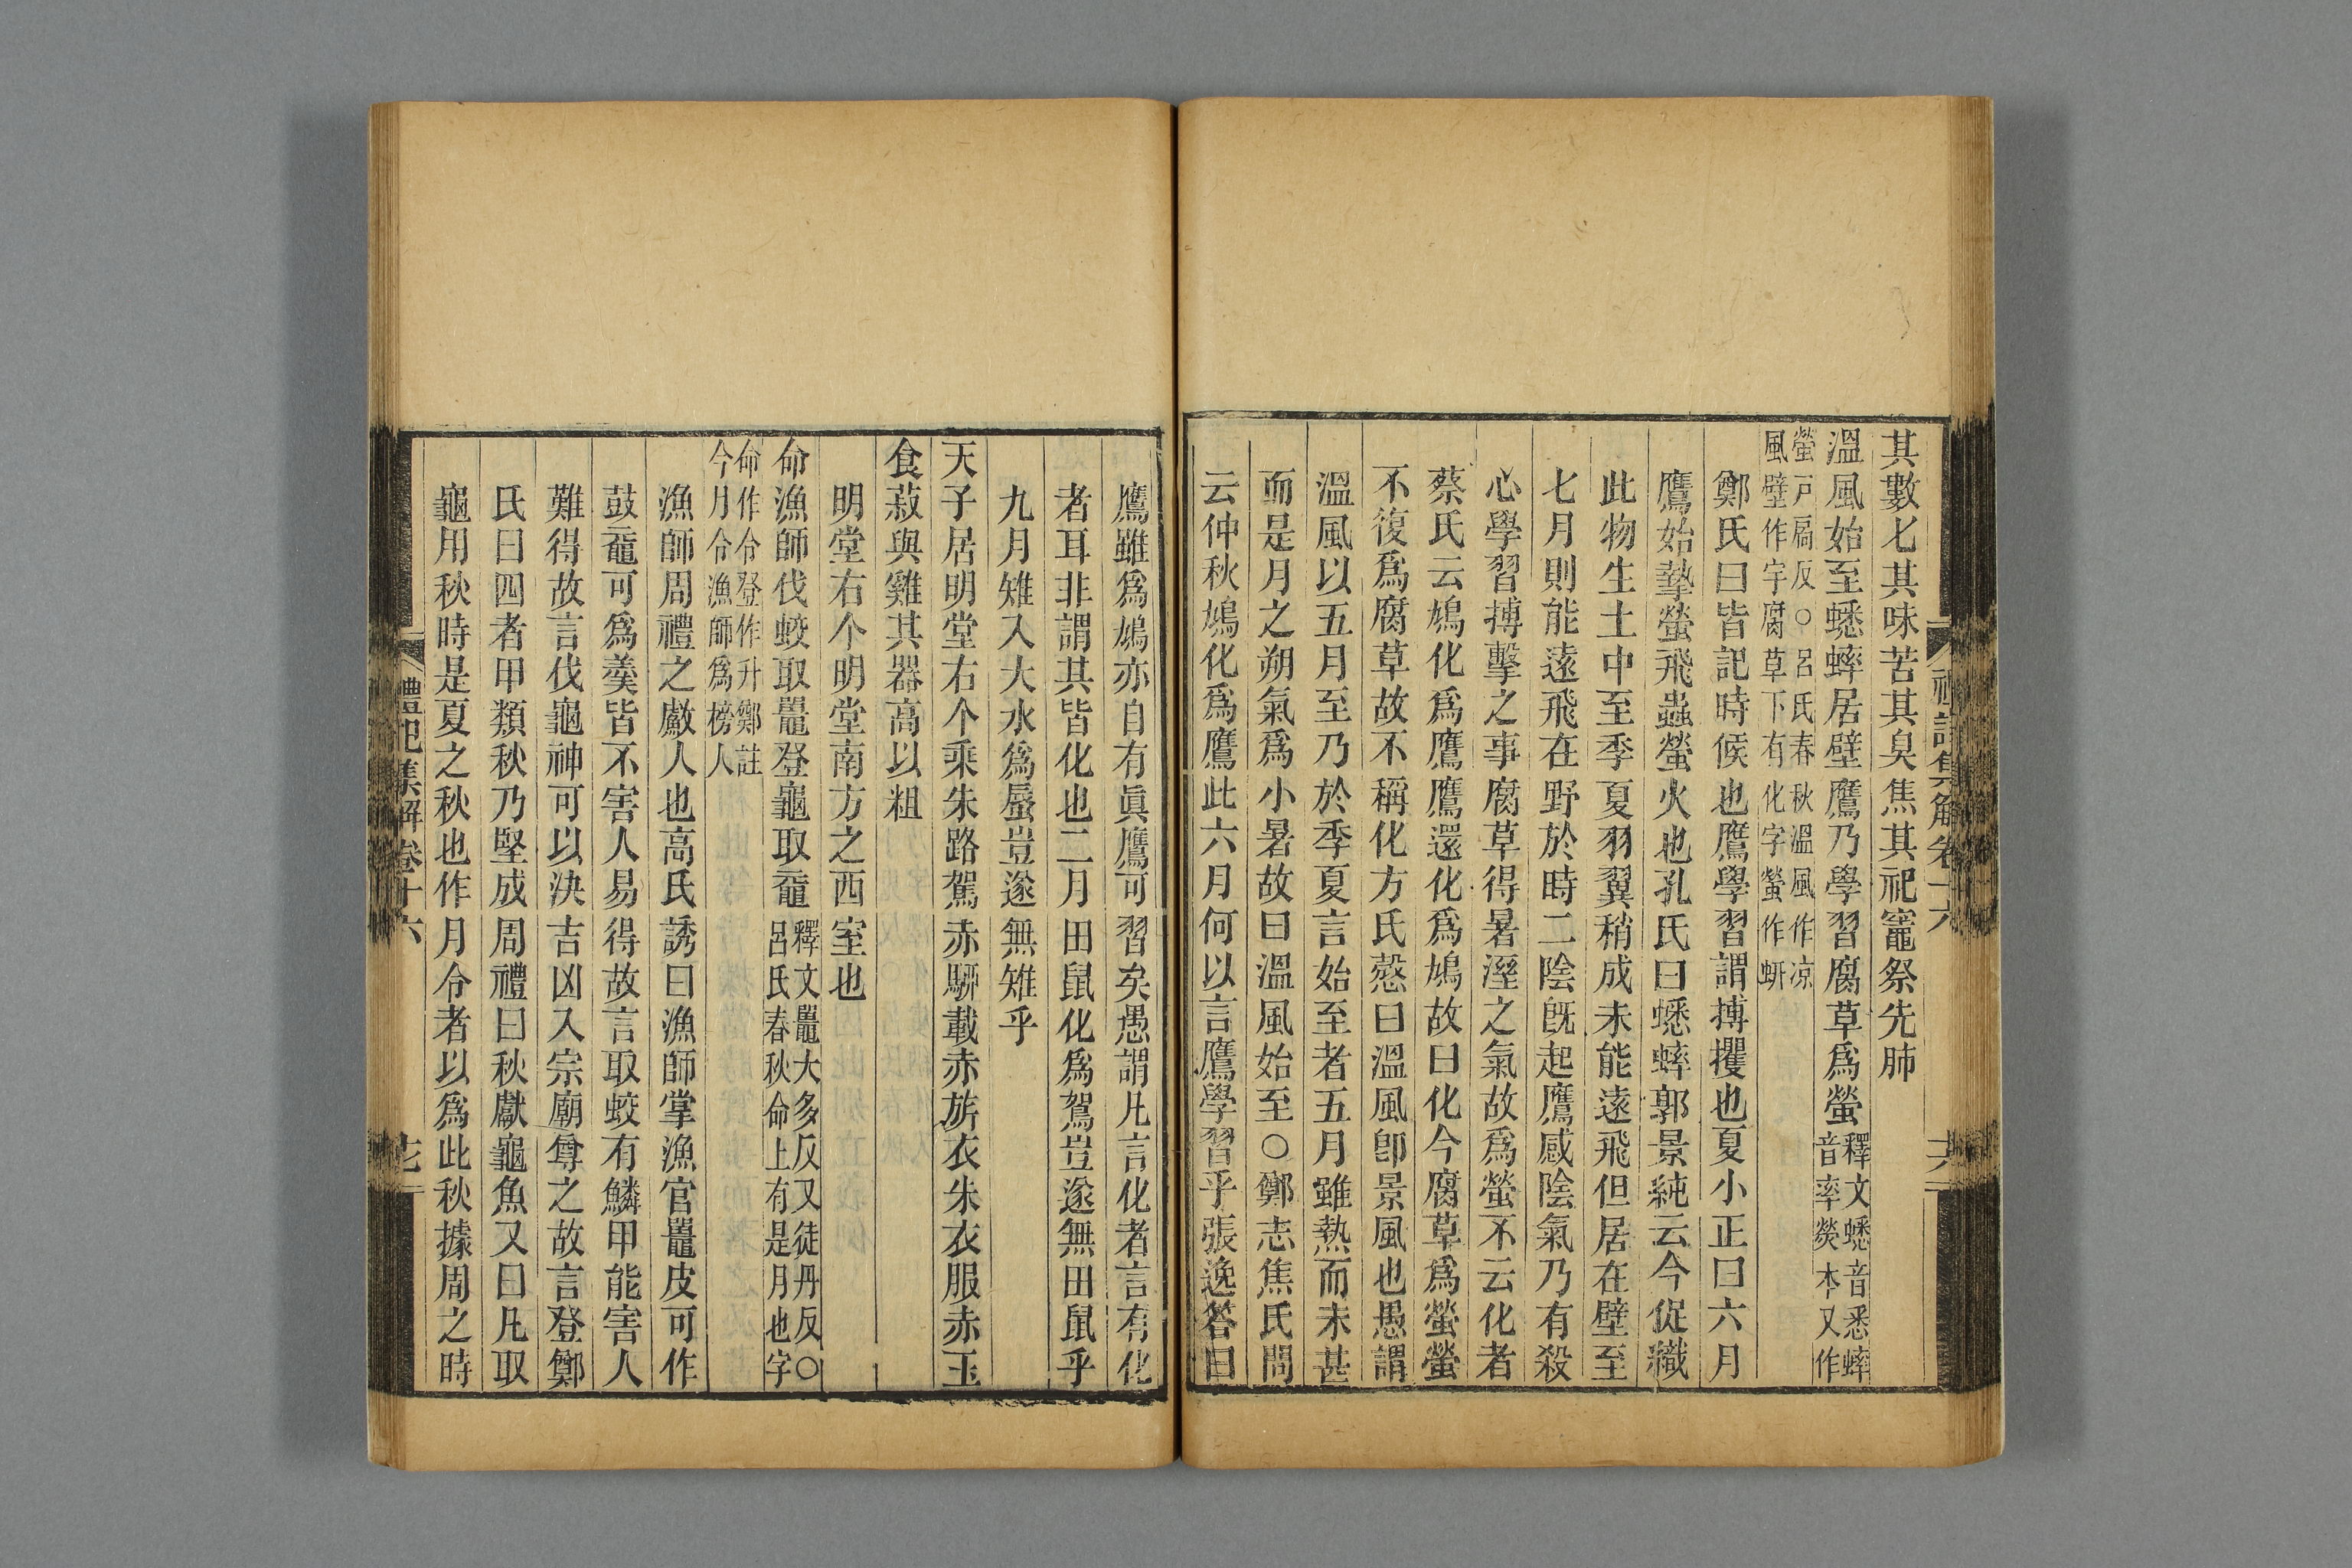 禮記集解卷十六
其數七其味苦其臭焦其祀竈祭先肺
溫風始至蟋蟀居壁鷹乃學習腐草爲螢釋文蟋音悉蟀
音率熒本又作
螢戸扃反○呂氏春秋溫風作凉
風壁作宇腐草下有化字螢作蚈
鄭氏曰皆記時候也鷹學習謂搏攫也夏小正曰六月
鷹始摯螢飛蟲螢火也孔氏曰蟋蟀郭景純云今促織
此物生土中至季夏羽翼稍成未能遠飛但居在壁至
七月則能遠飛在野於時二陰旣起鷹感陰氣乃有殺
心學習搏擊之事腐草得暑溼之氣故爲螢不云化者
蔡氏云鳩化爲鷹鷹還化爲鳩故曰化今腐草爲螢螢
不復爲腐草故不稱化方氏慤曰溫風卽景風也愚謂
溫風以五月至乃於季夏言始至者五月雖熱而未甚
而是月之朔氣爲小暑故曰溫風始至○鄭志焦氏問
云仲秋鳩化爲鷹此六月何以言鷹學習乎張逸答曰
鷹雖爲鳩亦自有眞鷹可習矣愚謂凡言化者言有化
者耳非謂其皆化也二月田鼠化爲鴽豈遂無田鼠乎
九月雉入大水爲蜃豈遂無雉乎
天子居明堂右个乘朱路駕赤駵載赤旂衣朱衣服赤玉
食菽與雞其器高以粗
明堂右个明堂南方之西室也
命漁師伐蛟取鼉登龜取黿釋文鼉大多反又徒丹反○
呂氏春秋命上有是月也字
命作令登作升鄭註
今月令漁師爲榜人
漁師周禮之䱷人也高氏誘曰漁師掌漁官鼉皮可作
鼓黿可爲羹皆不害人易得故言取蛟有鱗甲能害人
難得故言伐龜神可以決吉凶入宗廟尊之故言登鄭
氏曰四者甲類秋乃堅成周禮曰秋獻龜魚又曰凡取
龜用秋時是夏之秋也作月令者以爲此秋據周之時
禮記集解卷十六